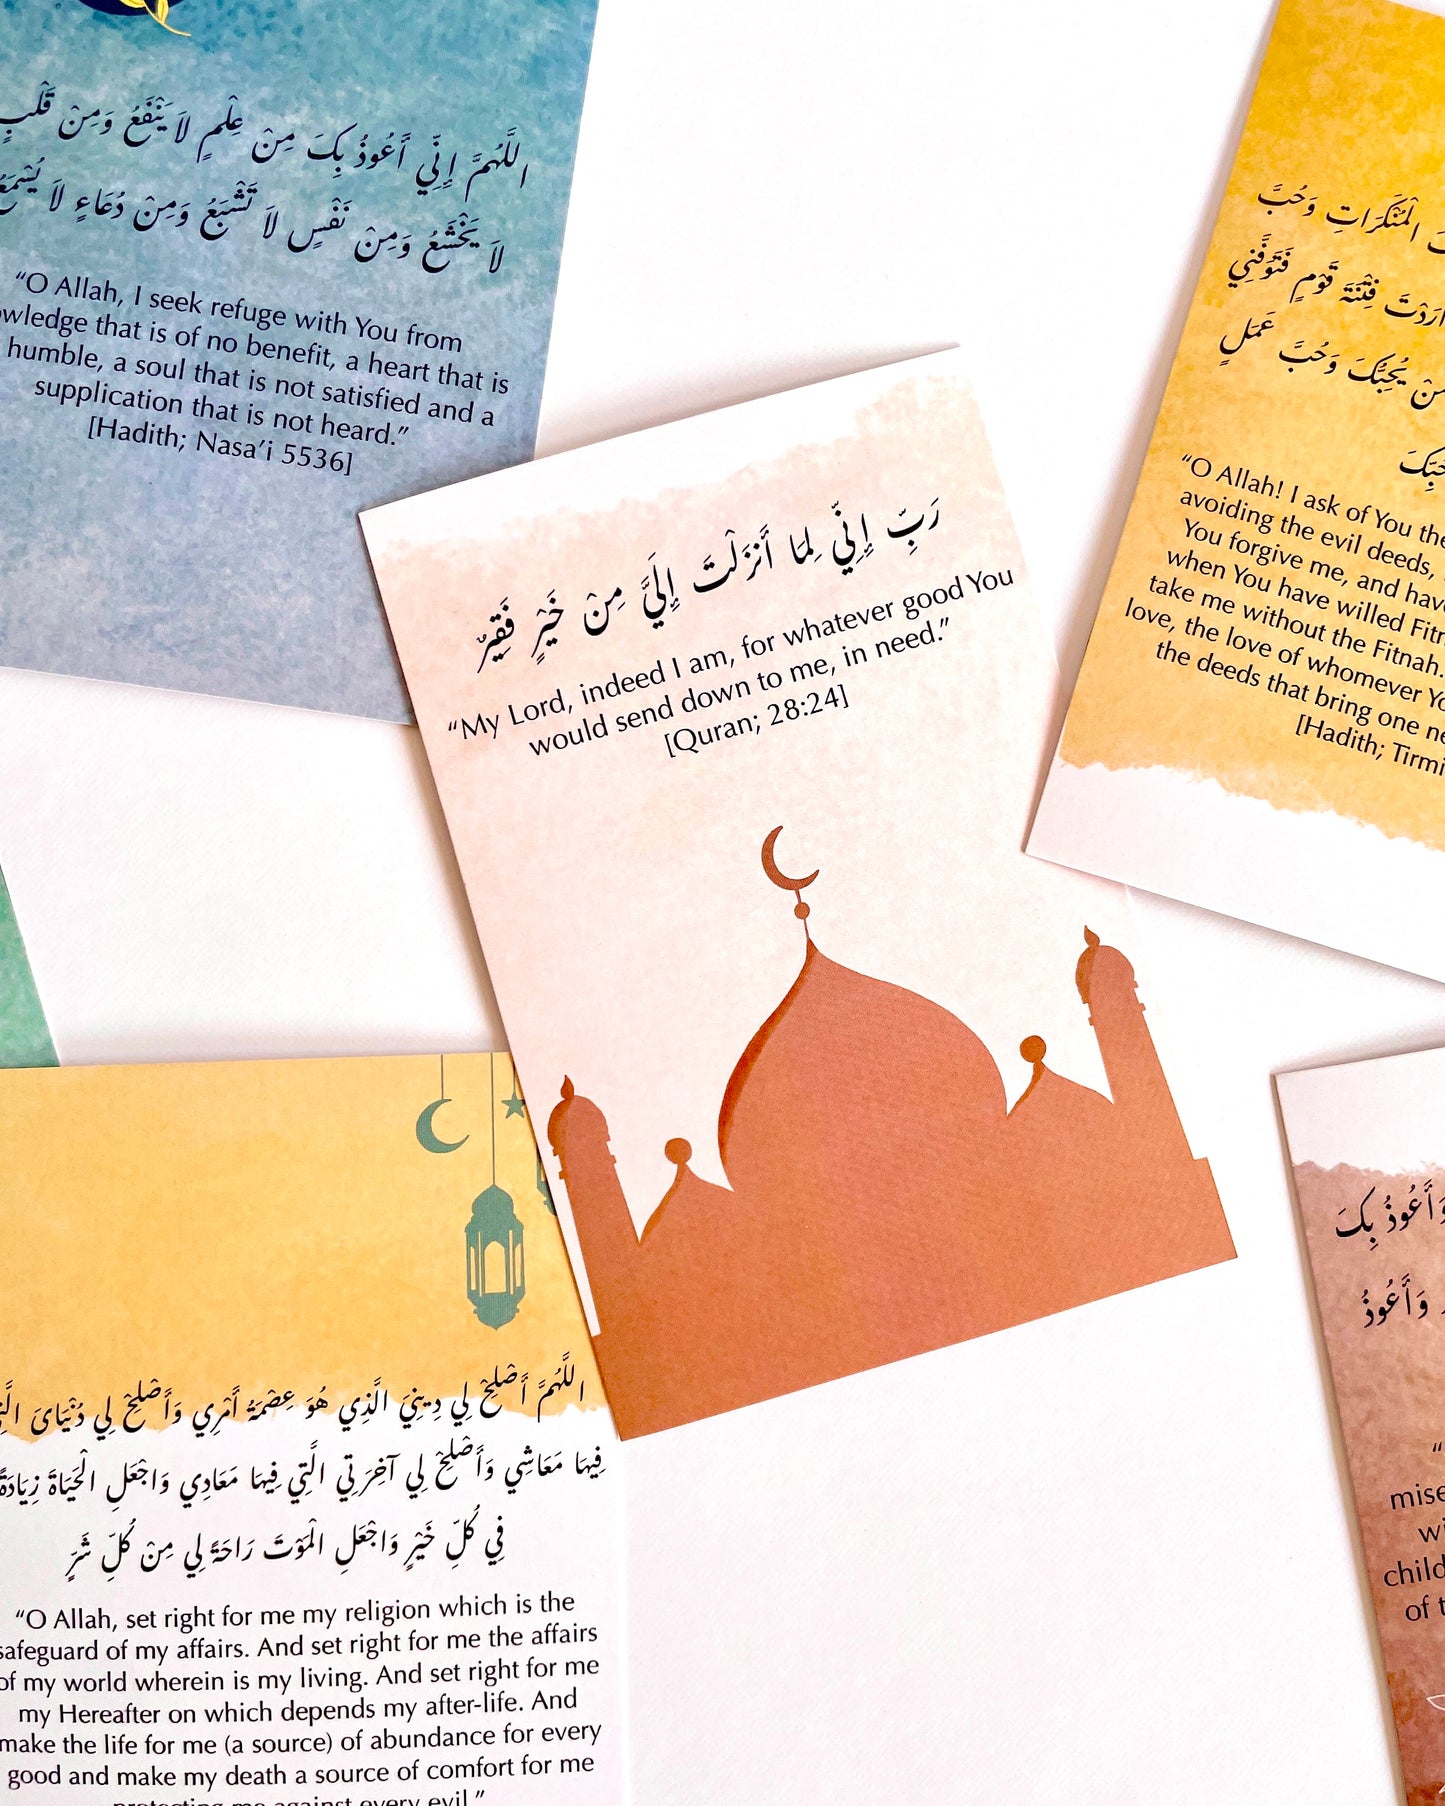 اللَّهُمَّ إِنِّي أَعُوذُ بِكَ مِنْ عِلْمٍ لاَ يَنْفَعُ وَمِنْ قَلْبٍ
لاَ يَخْشَعُ وَمِنْ نَفْسٍ لاَ تَشْبَعُ وَمِنْ دُعَاءٍ لاَ يُسْمَعُ
“O Allah, I seek refuge with You from
wledge that is of no benefit, a heart that is
humble, a soul that is not satisfied and a
supplication that is not heard.”
[Hadith; Nasa’i 5536]
رَبِّ إِنِّي لِمَا أَنزَلْتَ إِلَيَّ مِنْ خَيْرٍ فَقِيرٌ
“My Lord, indeed I am, for whatever good You
would send down to me, in need.”
[Quran; 28:24]
الْمُنْكَرَاتِ وَحُبَّ
ارَدْتَ فِتْنَةَ قَوْمٍ فَتَوَفَّنِي
مَنْ يُحِبُّكَ وَحُبَّ عَمَلٍ
“O Allah! I ask of You the
avoiding the evil deeds,
You forgive me, and have
when You have willed Fitn
take me without the Fitnah.
love, the love of whomever Yo
the deeds that bring one ne
[Hadith; Tirmi
اللَّهُمَّ أَصْلِحْ لِي دِينِيَ الَّذِي هُوَ عِصْمَةُ أَمْرِي وَأَصْلِحْ لِي دُنْيَاىَ الَّتِي
فِيهَا مَعَاشِي وَأَصْلِحْ لِي آخِرَتِي الَّتِي فِيهَا مَعَادِي وَاجْعَلِ الْحَيَاةَ زِيَادَةً
فِي كُلِّ خَيْرٍ وَاجْعَلِ الْمَوْتَ رَاحَةً لِي مِنْ كُلِّ شَرٍّ
“O Allah, set right for me my religion which is the
safeguard of my affairs. And set right for me the affairs
of my world wherein is my living. And set right for me
my Hereafter on which depends my after-life. And
make the life for me (a source) of abundance for every
good and make my death a source of comfort for me
protecting me against every evil.”
وَأَعُوذُ بِكَ
وَأَعُوذُ
“
mise
wi
child
of t